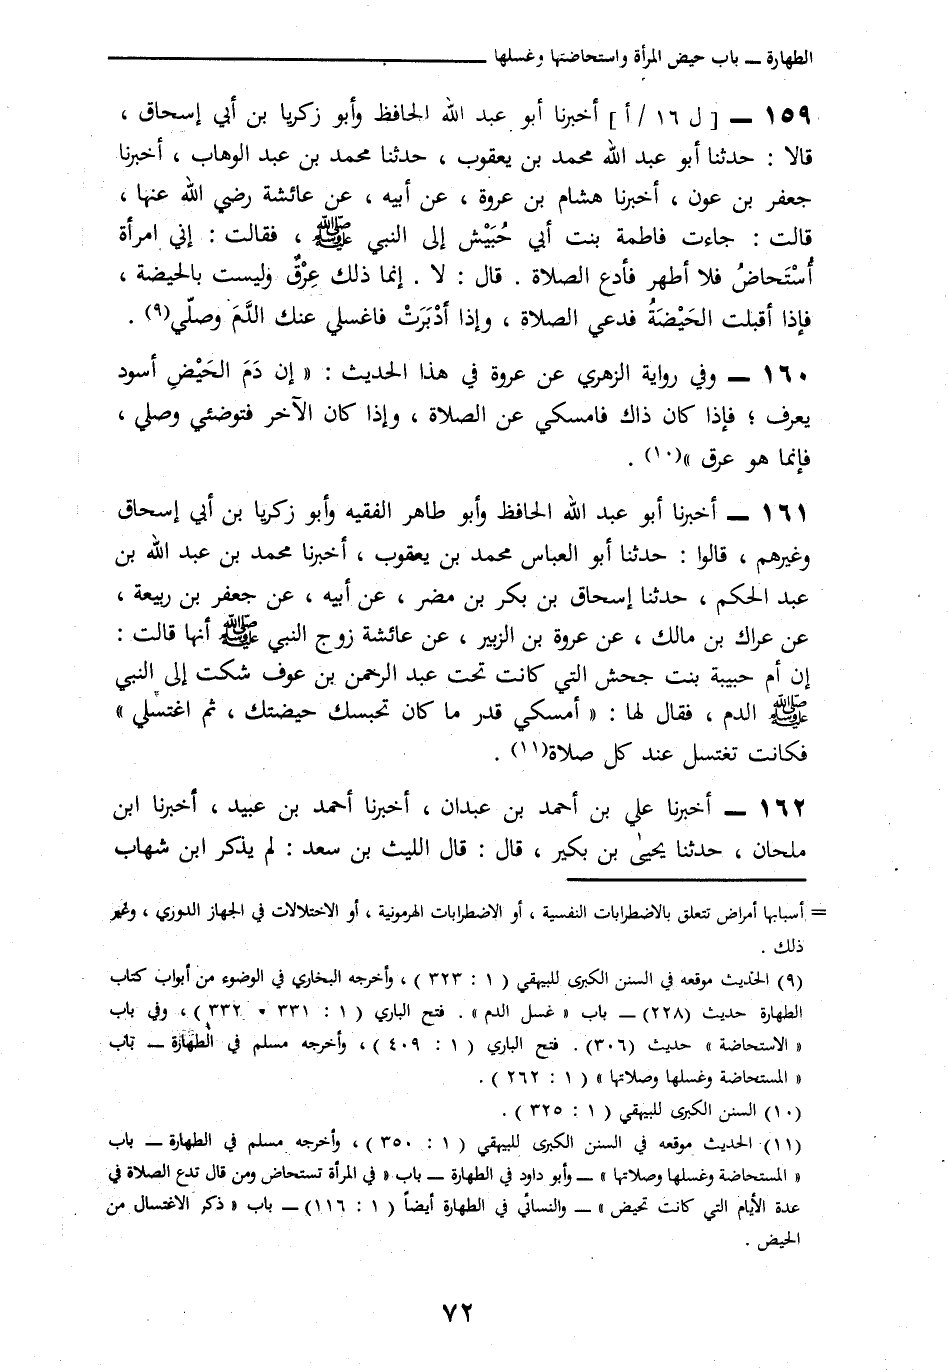 الطهارة ــ باب حيض المرأة واستحاضتها وغسلها
١٥٩ ــ [ ل ١٦ / أ ] أخبرنا أبو عبد الله الحافظ وأبو زكريا بن أبي إسحاق ،
قالا : حدثنا أبو عبد الله محمد بن يعقوب ، حدثنا محمد بن عبد الوهاب ، أخبرنا
جعفر بن عون ، أخبرنا هشام بن عروة ، عن أبيه ، عن عائشة رضي الله عنها ،
قالت : جاءت فاطمة بنت أبي حُبَيْش إلى النبي ﷺ ، فقالت : إني امرأة
أُسْتَحاضُ فلا أطهر فأدع الصلاة . قال : لا . إنما ذلك عِرْقٌ وليست بالحيضة ،
فإذا أقبلت الحَيْضَةُ فدعي الصلاة ، وإذا أدْبَرَتْ فاغسلي عنك الدَّمَ وصلّي(٩) .
١٦٠ ــ وفي رواية الزهري عن عروة في هذا الحديث : « إن دَمَ الحَيْضِ أسود
يعرف ؛ فإذا كان ذاك فامسكي عن الصلاة ، وإذا كان الآخر فتوضئي وصلي ،
فإنما هو عرق »(١٠) .
١٦١ ــ أخبرنا أبو عبد الله الحافظ وأبو طاهر الفقيه وأبو زكريا بن أبي إسحاق
وغيرهم ، قالوا : حدثنا أبو العباس محمد بن يعقوب ، أخبرنا محمد بن عبد الله بن
عبد الحكم ، حدثنا إسحاق بن بكر بن مضر ، عن أبيه ، عن جعفر بن ربيعة ،
عن عراك بن مالك ، عن عروة بن الزبير ، عن عائشة زوج النبي ﷺ أنها قالت :
إن أم حبيبة بنت جحش التي كانت تحت عبد الرحمن بن عوف شكت إلى النبي
ﷺ الدم ، فقال لها : « أمسكي قدر ما كان تحبسك حيضتك ، ثم اغتسلي »
فكانت تغتسل عند كل صلاة(١١) .
١٦٢ ــ أخبرنا علي بن أحمد بن عبدان ، أخبرنا أحمد بن عبيد ، أخبرنا ابن
ملحان ، حدثنا يحيىٰ بن بكير ، قال : قال الليث بن سعد : لم يذكر ابن شهاب
= أسبابها أمراض تتعلق بالاضطرابات النفسية ، أو الاضطرابات الهرمونية ، أو الاختلالات في الجهاز الدوري ، وغير
ذلك .
(٩) الحديث موقعه في السنن الكبرى للبيهقي ( ١ : ٣٢٣ ) ، وأخرجه البخاري في الوضوء من أبواب كتاب
الطهارة حديث (٢٢٨) ــ باب « غسل الدم » . فتح الباري ( ١ : ٣٣١ ، ٣٣٢ ) ، وفي باب
« الاستحاضة » حديث (٣٠٦) . فتح الباري ( ١ : ٤٠٩ ) ، وأخرجه مسلم في الطهارة ــ باب
« المستحاضة وغسلها وصلاتها » ( ١ : ٢٦٢ ) .
(١٠) السنن الكبرى للبيهقي ( ١ : ٣٢٥ ) .
(١١) الحديث موقعه في السنن الكبرى للبيهقي ( ١ : ٣٥٠ ) ، وأخرجه مسلم في الطهارة ــ باب
« المستحاضة وغسلها وصلاتها » ــ وأبو داود في الطهارة ــ باب « في المرأة تستحاض ومن قال تدع الصلاة في
عدة الأيام التي كانت تحيض » ــ والنسائي في الطهارة أيضاً ( ١ : ١١٦) ــ باب « ذكر الاغتسال من
الحيض .
٧٢